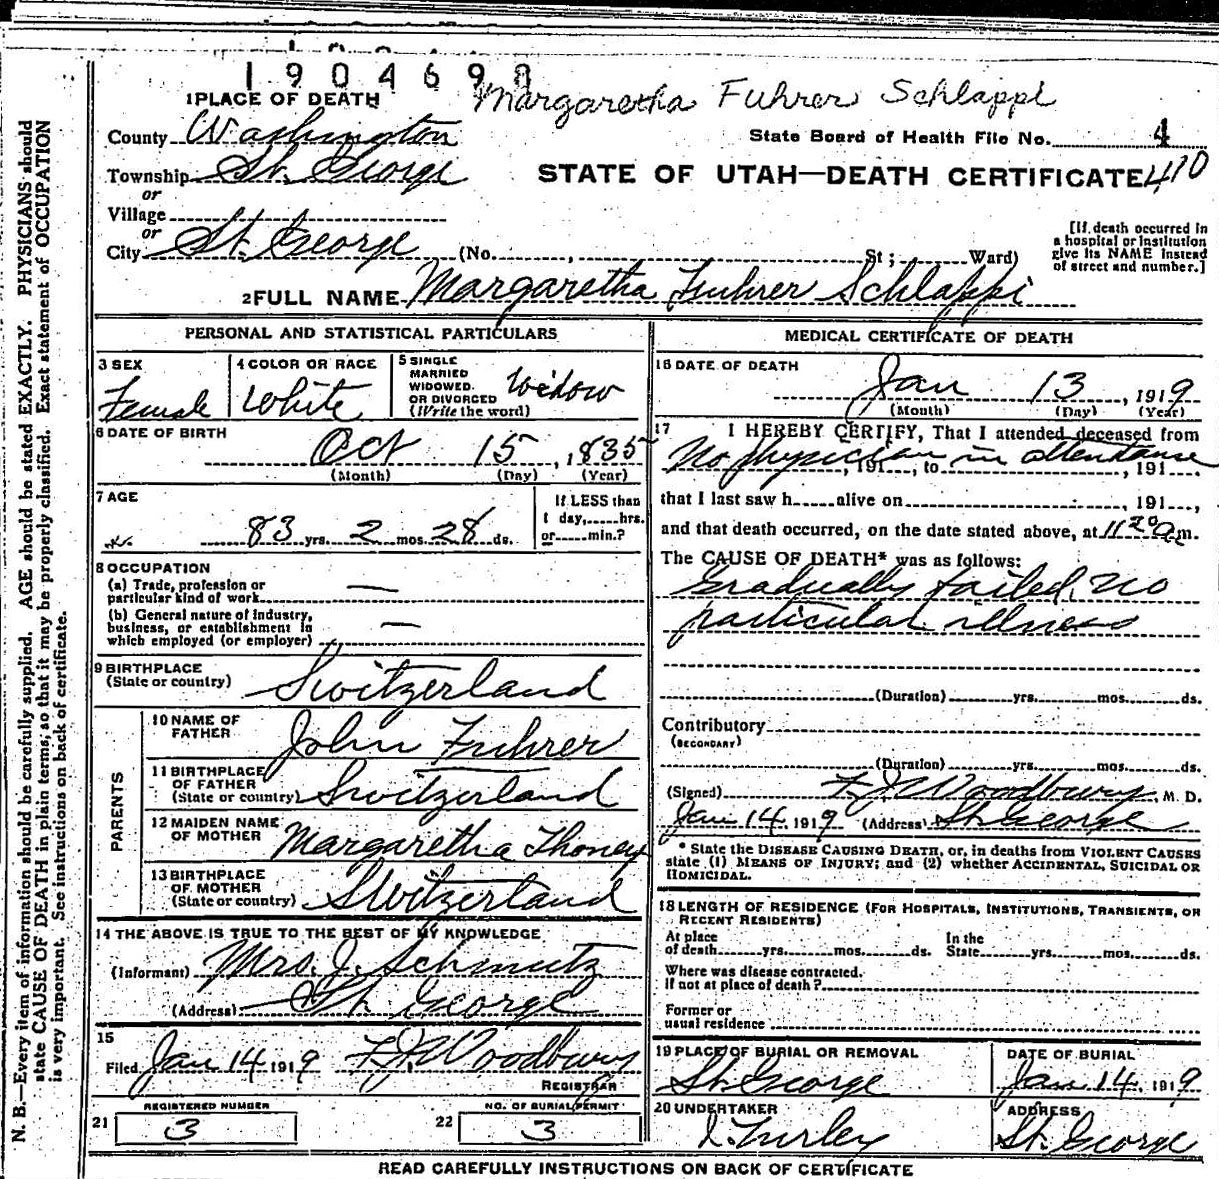 1904698
Margaretha Fuhrer Schlappi
1 PLACE OF DEATH
County Washington
State Board of Health File No. 4
Township St. George
STATE OF UTAH—DEATH CERTIFICATE 410
or
Village
or
City St. George (No. , St; Ward)
[If death occurred in
a hospital or institution
give its NAME instead
of street and number.]
2 FULL NAME Margaretha Fuhrer Schlappi
PERSONAL AND STATISTICAL PARTICULARS
3 SEX
Female
4 COLOR OR RACE
White
5 SINGLE
MARRIED
WIDOWED.
OR DIVORCED
(Write the word)
Widow
6 DATE OF BIRTH
Oct 15, 1835
(Month) (Day) (Year)
7 AGE
83 yrs. 2 mos. 28 ds.
If LESS than
1 day, hrs.
or min.?
8 OCCUPATION
(a) Trade, profession or
particular kind of work —
(b) General nature of industry,
business, or establishment in
which employed (or employer) —
9 BIRTHPLACE
(State or country) Switzerland
PARENTS
10 NAME OF
FATHER John Fuhrer
11 BIRTHPLACE
OF FATHER
(State or country) Switzerland
12 MAIDEN NAME
OF MOTHER Margaretha Thoney
13 BIRTHPLACE
OF MOTHER
(State or country) Switzerland
14 THE ABOVE IS TRUE TO THE BEST OF MY KNOWLEDGE
(Informant) Mrs. J. Schmutz
(Address) St. George
15
Filed Jan 14 1919 F. J. Woodbury
REGISTRAR
REGISTERED NUMBER
21 3
NO. OF BURIAL PERMIT
22 3
MEDICAL CERTIFICATE OF DEATH
16 DATE OF DEATH
Jan 13, 1919
(Month) (Day) (Year)
17 I HEREBY CERTIFY, That I attended deceased from
No physician in attendance, 191 , to , 191
that I last saw h alive on , 191 ,
and that death occurred, on the date stated above, at 11 20 a m.
The CAUSE OF DEATH* was as follows:
Gradually failed. No
particular illness
(Duration) yrs. mos. ds.
Contributory
(SECONDARY)
(Duration) yrs. mos. ds.
(Signed) F. J. Woodbury, M. D.
Jan 14, 1919 (Address) St. George
* State the DISEASE CAUSING DEATH, or, in deaths from VIOLENT CAUSES
state (1) MEANS OF INJURY; and (2) whether ACCIDENTAL, SUICIDAL OR
HOMICIDAL.
18 LENGTH OF RESIDENCE (FOR HOSPITALS, INSTITUTIONS, TRANSIENTS, OR
RECENT RESIDENTS)
At place
of death yrs. mos. ds.
In the
State yrs. mos. ds.
Where was disease contracted.
If not at place of death?
Former or
usual residence
19 PLACE OF BURIAL OR REMOVAL
St. George
DATE OF BURIAL
Jan 14, 1919
20 UNDERTAKER
Turley
ADDRESS
St. George
READ CAREFULLY INSTRUCTIONS ON BACK OF CERTIFICATE
N. B.—Every item of information should be carefully supplied. AGE should be stated EXACTLY. PHYSICIANS should
state CAUSE OF DEATH in plain terms, so that it may be properly classified. Exact statement of OCCUPATION
is very important. See instructions on back of certificate.